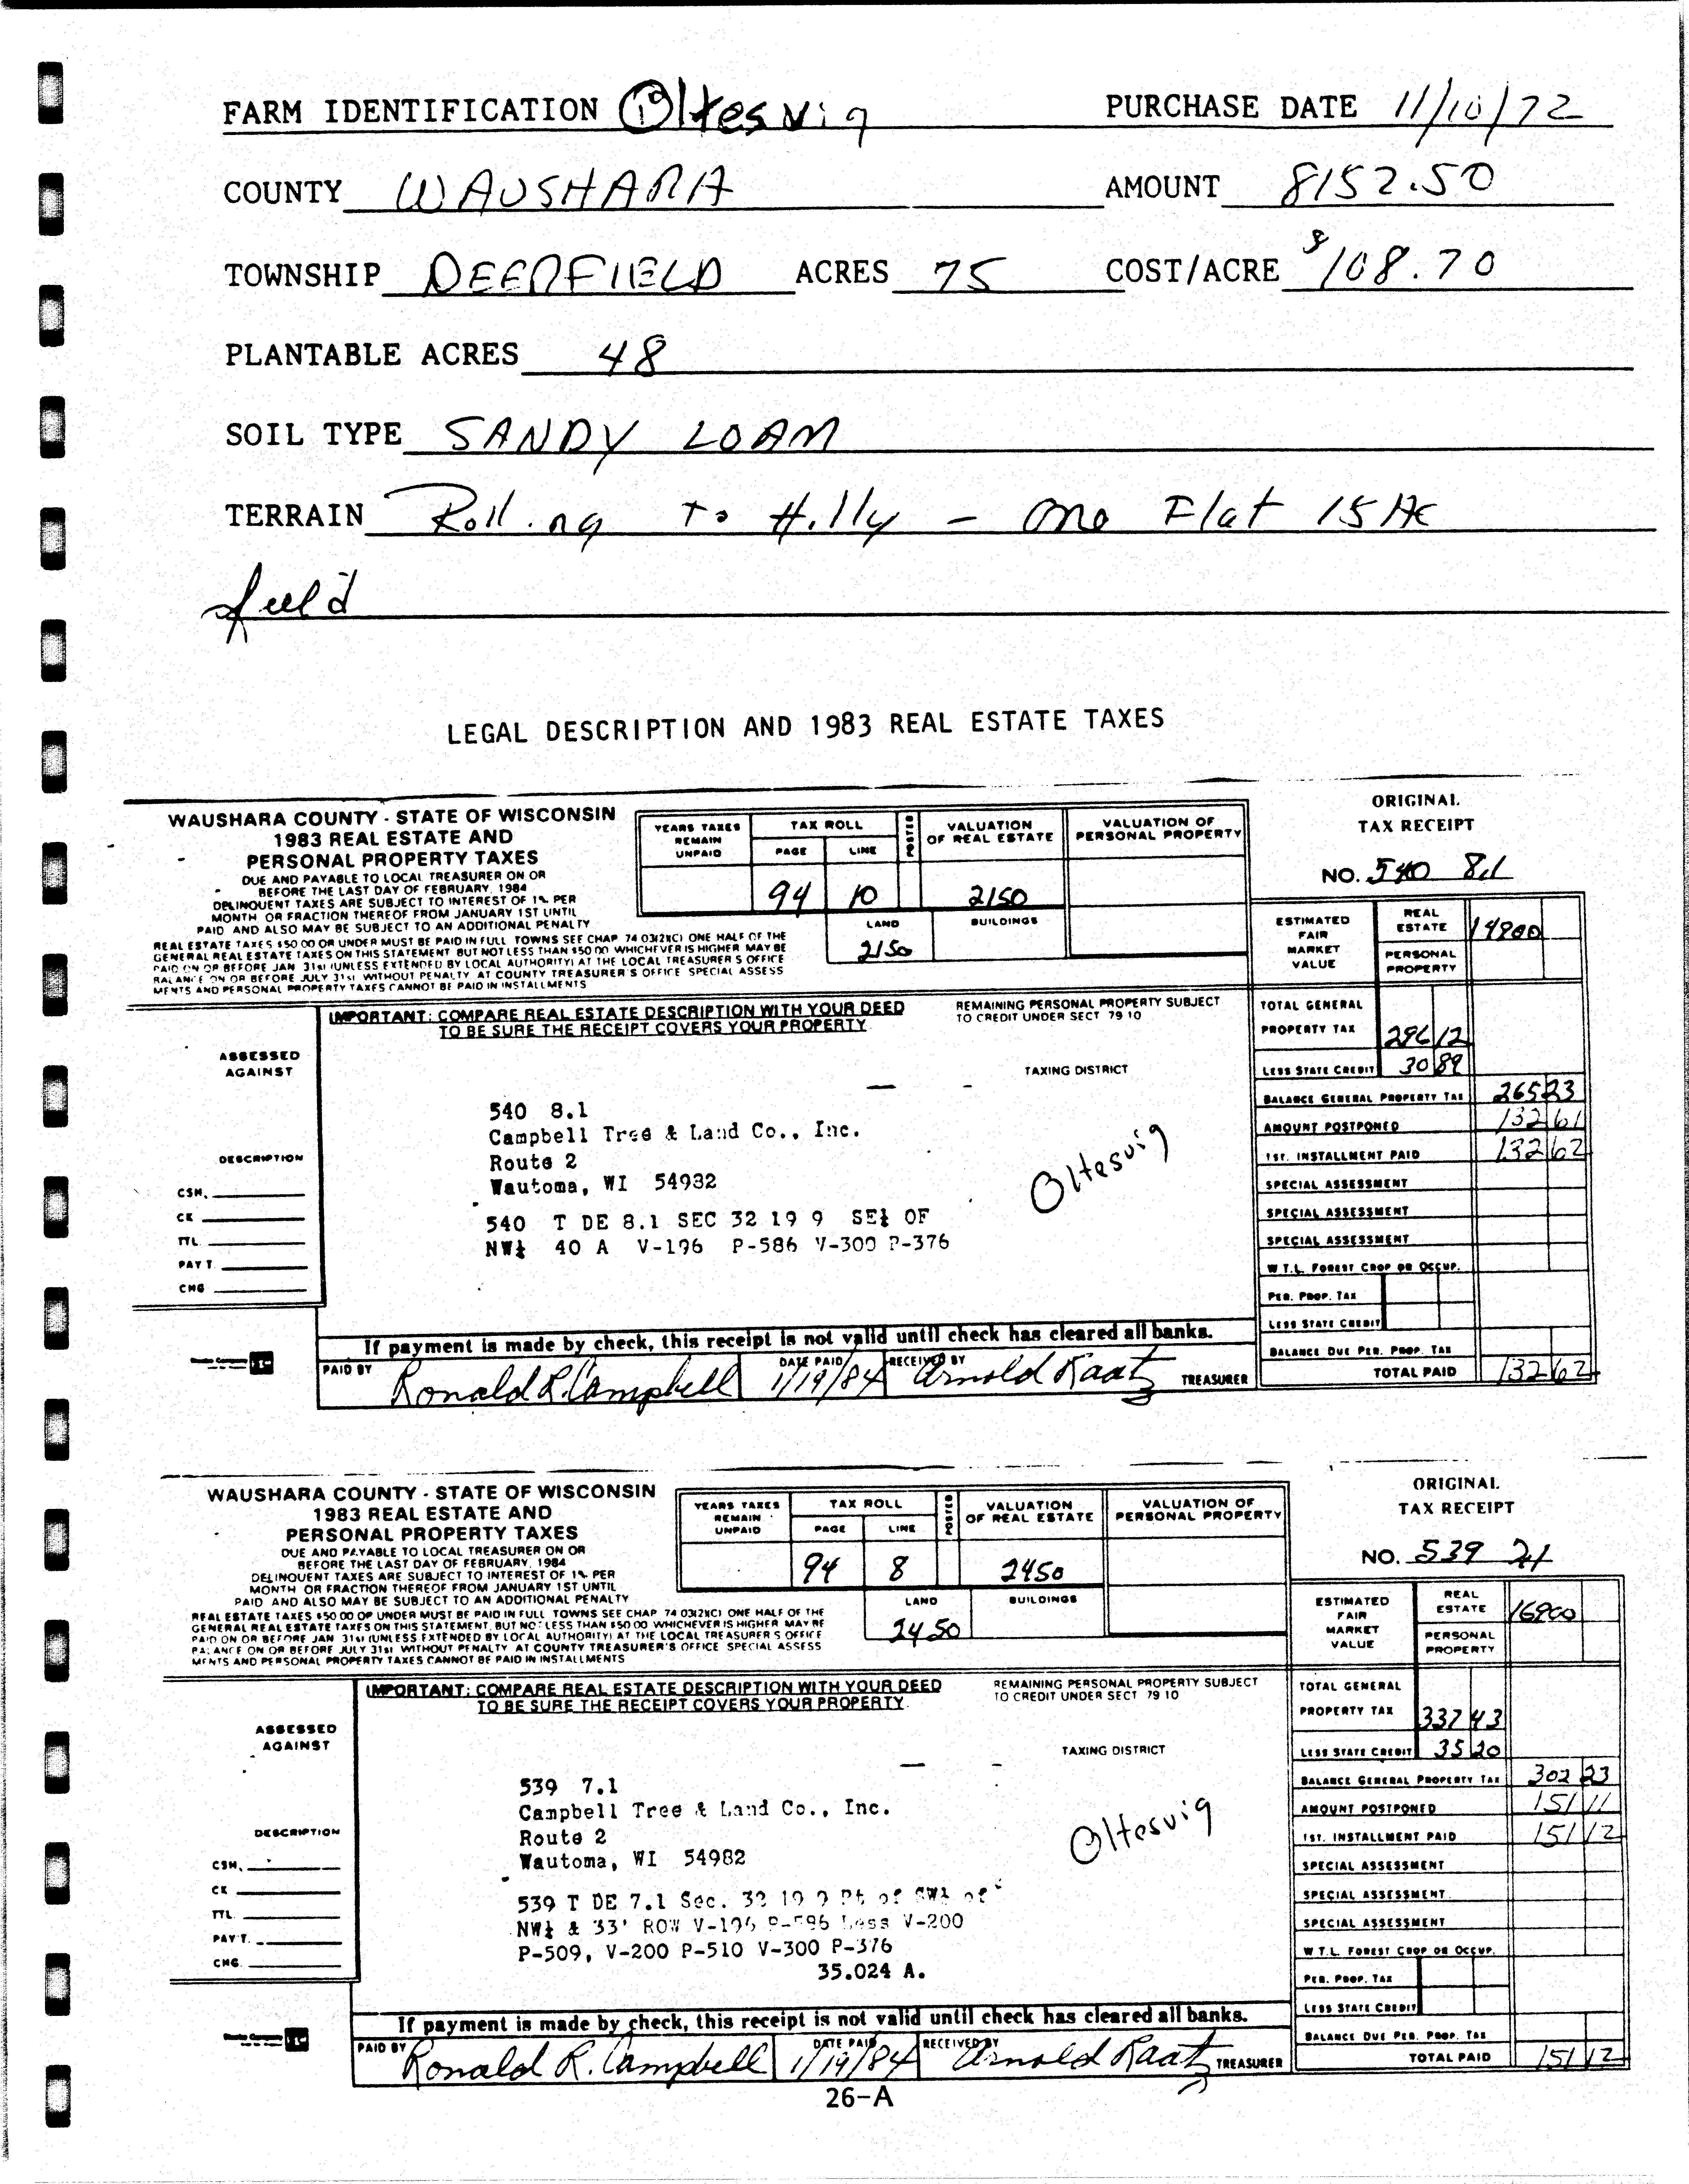 FARM IDENTIFICATION 19 Oltesvig PURCHASE DATE 11/10/72
COUNTY WAUSHARA AMOUNT 8152.50
TOWNSHIP DEERFIELD ACRES 75 COST/ACRE $108.70
PLANTABLE ACRES 48
SOIL TYPE SANDY LOAM
TERRAIN Rolling To Hilly - One Flat 15 Ac
field
LEGAL DESCRIPTION AND 1983 REAL ESTATE TAXES
WAUSHARA COUNTY - STATE OF WISCONSIN
1983 REAL ESTATE AND
PERSONAL PROPERTY TAXES
DUE AND PAYABLE TO LOCAL TREASURER ON OR
BEFORE THE LAST DAY OF FEBRUARY, 1984
DELINQUENT TAXES ARE SUBJECT TO INTEREST OF 1% PER
MONTH OR FRACTION THEREOF FROM JANUARY 1ST UNTIL
PAID AND ALSO MAY BE SUBJECT TO AN ADDITIONAL PENALTY
REAL ESTATE TAXES $50.00 OR UNDER MUST BE PAID IN FULL TOWNS SEE CHAP 74.03(2)(C) ONE HALF OF THE
GENERAL REAL ESTATE TAXES ON THIS STATEMENT BUT NOT LESS THAN $50.00 WHICHEVER IS HIGHER MAY BE
PAID ON OR BEFORE JAN 31st (UNLESS EXTENDED BY LOCAL AUTHORITY) AT THE LOCAL TREASURER'S OFFICE
BALANCE ON OR BEFORE JULY 31st WITHOUT PENALTY AT COUNTY TREASURER'S OFFICE SPECIAL ASSESS
MENTS AND PERSONAL PROPERTY TAXES CANNOT BE PAID IN INSTALLMENTS
YEARS TAXES REMAIN UNPAID
TAX ROLL
PAGE LINE
POSTED
VALUATION OF REAL ESTATE
VALUATION OF PERSONAL PROPERTY
94 10 2150
LAND BUILDINGS
2150
ORIGINAL
TAX RECEIPT
NO. 540 8.1
ESTIMATED FAIR MARKET VALUE
REAL ESTATE 14800
PERSONAL PROPERTY
IMPORTANT: COMPARE REAL ESTATE DESCRIPTION WITH YOUR DEED
TO BE SURE THE RECEIPT COVERS YOUR PROPERTY.
REMAINING PERSONAL PROPERTY SUBJECT
TO CREDIT UNDER SECT 79 10
ASSESSED
AGAINST
TAXING DISTRICT
540 8.1
Campbell Tree & Land Co., Inc.
Route 2
Wautoma, WI 54982
Oltesvig
540 T DE 8.1 SEC 32 19 9 SE¼ OF
NW¼ 40 A V-196 P-586 V-300 P-376
DESCRIPTION
CSM.
CK
TTL.
PAY'T.
CHG
TOTAL GENERAL
PROPERTY TAX 296 12
LESS STATE CREDIT 30 89
BALANCE GENERAL PROPERTY TAX 265 23
AMOUNT POSTPONED 132 61
1ST. INSTALLMENT PAID 132 62
SPECIAL ASSESSMENT
SPECIAL ASSESSMENT
SPECIAL ASSESSMENT
W.T.L. FOREST CROP OR OCCUP.
PER. PROP. TAX
LESS STATE CREDIT
BALANCE DUE PER. PROP. TAX
TOTAL PAID 132 62
If payment is made by check, this receipt is not valid until check has cleared all banks.
PAID BY Ronald R. Campbell DATE PAID 1/19/84 RECEIVED BY Arnold Raatz TREASURER
WAUSHARA COUNTY - STATE OF WISCONSIN
1983 REAL ESTATE AND
PERSONAL PROPERTY TAXES
DUE AND PAYABLE TO LOCAL TREASURER ON OR
BEFORE THE LAST DAY OF FEBRUARY, 1984
DELINQUENT TAXES ARE SUBJECT TO INTEREST OF 1% PER
MONTH OR FRACTION THEREOF FROM JANUARY 1ST UNTIL
PAID AND ALSO MAY BE SUBJECT TO AN ADDITIONAL PENALTY
REAL ESTATE TAXES $50.00 OR UNDER MUST BE PAID IN FULL TOWNS SEE CHAP 74.03(2)(C) ONE HALF OF THE
GENERAL REAL ESTATE TAXES ON THIS STATEMENT, BUT NOT LESS THAN $50.00 WHICHEVER IS HIGHER MAY BE
PAID ON OR BEFORE JAN 31st (UNLESS EXTENDED BY LOCAL AUTHORITY) AT THE LOCAL TREASURER'S OFFICE
BALANCE ON OR BEFORE JULY 31st WITHOUT PENALTY AT COUNTY TREASURER'S OFFICE SPECIAL ASSESS
MENTS AND PERSONAL PROPERTY TAXES CANNOT BE PAID IN INSTALLMENTS
YEARS TAXES REMAIN UNPAID
TAX ROLL
PAGE LINE
POSTED
VALUATION OF REAL ESTATE
VALUATION OF PERSONAL PROPERTY
94 8 2450
LAND BUILDINGS
2450
ORIGINAL
TAX RECEIPT
NO. 539 7.1
ESTIMATED FAIR MARKET VALUE
REAL ESTATE 16900
PERSONAL PROPERTY
IMPORTANT: COMPARE REAL ESTATE DESCRIPTION WITH YOUR DEED
TO BE SURE THE RECEIPT COVERS YOUR PROPERTY.
REMAINING PERSONAL PROPERTY SUBJECT
TO CREDIT UNDER SECT 79 10
ASSESSED
AGAINST
TAXING DISTRICT
539 7.1
Campbell Tree & Land Co., Inc.
Route 2
Wautoma, WI 54982
Oltesvig
539 T DE 7.1 Sec. 32 19 9 Pt of SW¼ of
NW¼ & 33' ROW V-196 P-596 Less V-200
P-509, V-200 P-510 V-300 P-376
35.024 A.
DESCRIPTION
CSM.
CK
TTL.
PAY'T.
CHG.
TOTAL GENERAL
PROPERTY TAX 337 43
LESS STATE CREDIT 35 20
BALANCE GENERAL PROPERTY TAX 302 23
AMOUNT POSTPONED 151 11
1ST. INSTALLMENT PAID 151 12
SPECIAL ASSESSMENT
SPECIAL ASSESSMENT
SPECIAL ASSESSMENT
W.T.L. FOREST CROP OR OCCUP.
PER. PROP. TAX
LESS STATE CREDIT
BALANCE DUE PER. PROP. TAX
TOTAL PAID 151 12
If payment is made by check, this receipt is not valid until check has cleared all banks.
PAID BY Ronald R. Campbell DATE PAID 1/19/84 RECEIVED BY Arnold Raatz TREASURER
26-A